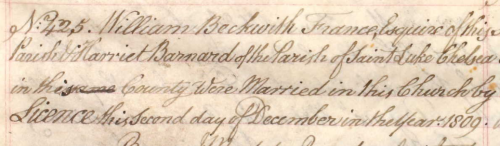 No. 425. William Beckwith France, Esquire of this
Parish & Harriet Barnard of the Parish of Saint Luke Chelsea
in the same County Were Married in this Church by
Licence this Second day of December in the Year 1809.